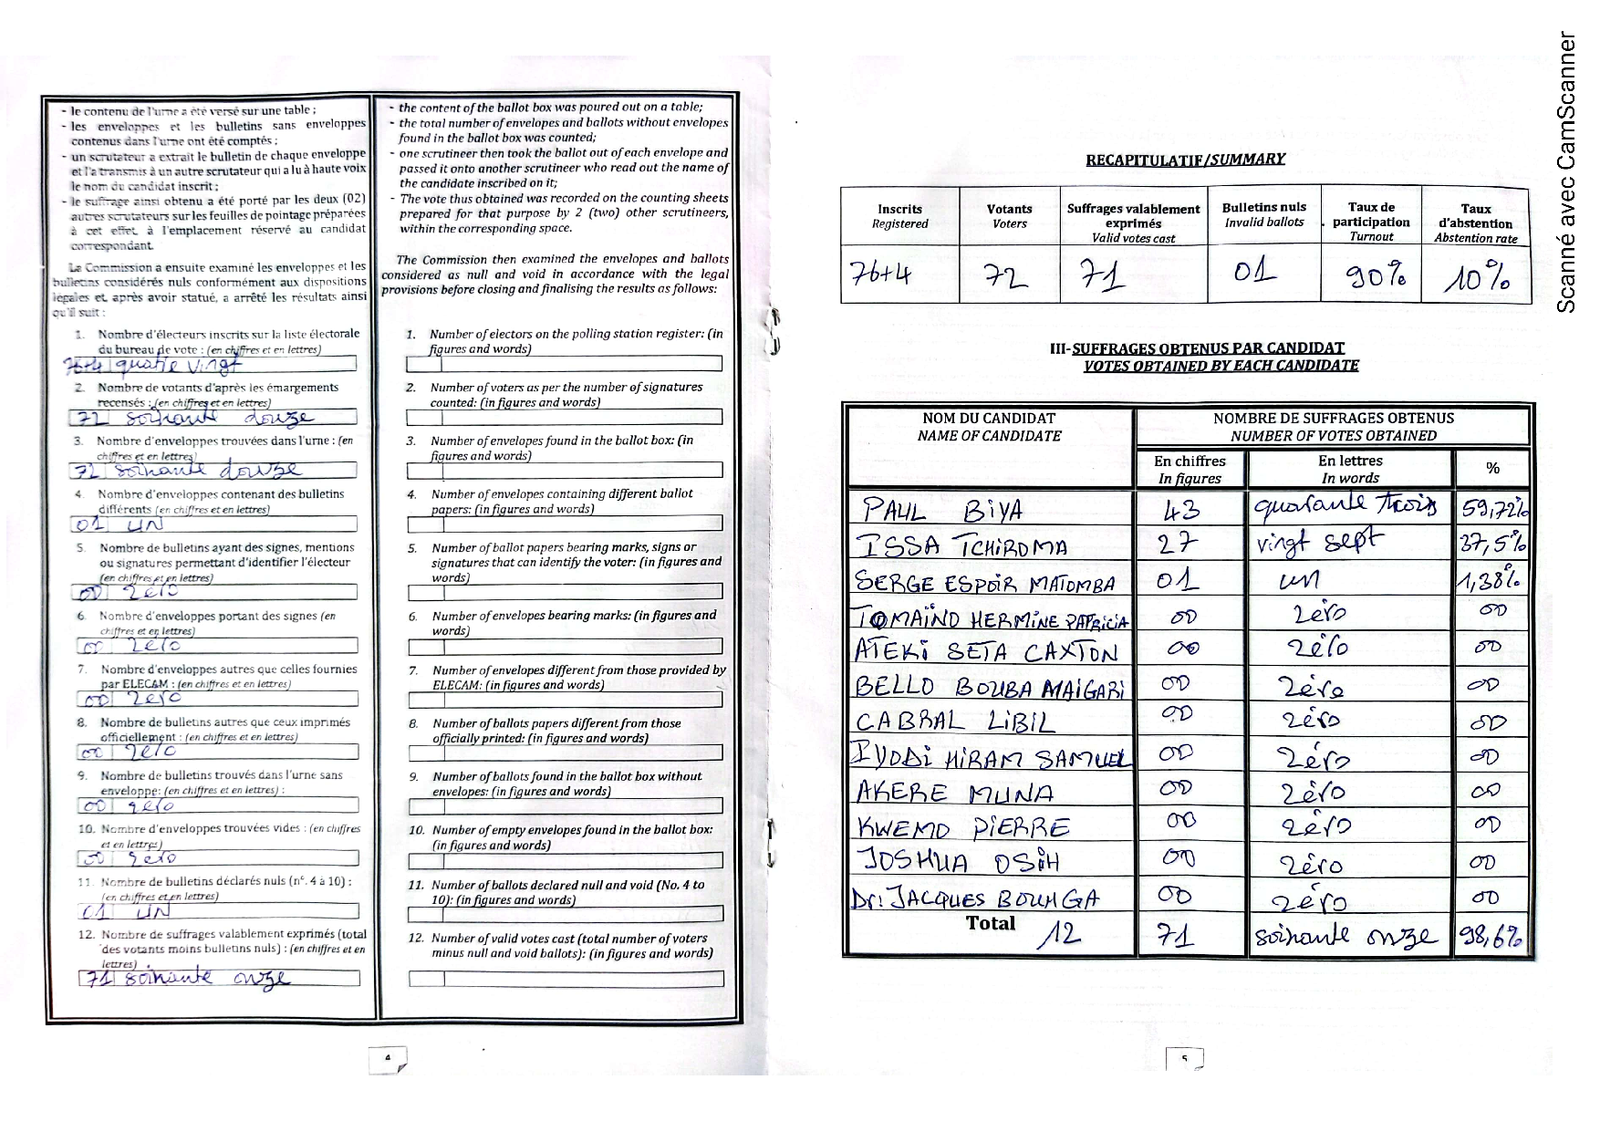 - le contenu de l'urne a été versé sur une table ;
- les enveloppes et les bulletins sans enveloppes
contenus dans l'urne ont été comptés ;
- un scrutateur a extrait le bulletin de chaque enveloppe
et l'a transmis à un autre scrutateur qui a lu à haute voix
le nom du candidat inscrit ;
- le suffrage ainsi obtenu a été porté par les deux (02)
autres scrutateurs sur les feuilles de pointage préparées
à cet effet à l'emplacement réservé au candidat
correspondant.
La Commission a ensuite examiné les enveloppes et les
bulletins considérés nuls conformément aux dispositions
légales et après avoir statué, a arrêté les résultats ainsi
qu'il suit :
1. Nombre d'électeurs inscrits sur la liste électorale
du bureau de vote : (en chiffres et en lettres)
76+4 quatre vingt
2. Nombre de votants d'après les émargements
recensés : (en chiffres et en lettres)
72 soixante douze
3. Nombre d'enveloppes trouvées dans l'urne : (en
chiffres et en lettres)
72 soixante douze
4. Nombre d'enveloppes contenant des bulletins
différents (en chiffres et en lettres)
01 UN
5. Nombre de bulletins ayant des signes, mentions
ou signatures permettant d'identifier l'électeur
(en chiffres et en lettres)
00 zéro
6. Nombre d'enveloppes portant des signes (en
chiffres et en lettres)
00 zéro
7. Nombre d'enveloppes autres que celles fournies
par ELECAM : (en chiffres et en lettres)
00 zéro
8. Nombre de bulletins autres que ceux imprimés
officiellement : (en chiffres et en lettres)
00 zéro
9. Nombre de bulletins trouvés dans l'urne sans
enveloppe: (en chiffres et en lettres) :
00 zéro
10. Nombre d'enveloppes trouvées vides : (en chiffres
et en lettres)
00 zéro
11. Nombre de bulletins déclarés nuls (n°. 4 à 10) :
(en chiffres et en lettres)
01 UN
12. Nombre de suffrages valablement exprimés (total
des votants moins bulletins nuls) : (en chiffres et en
lettres)
71 soixante onze
- the content of the ballot box was poured out on a table;
- the total number of envelopes and ballots without envelopes
found in the ballot box was counted;
- one scrutineer then took the ballot out of each envelope and
passed it onto another scrutineer who read out the name of
the candidate inscribed on it;
- The vote thus obtained was recorded on the counting sheets
prepared for that purpose by 2 (two) other scrutineers,
within the corresponding space.
The Commission then examined the envelopes and ballots
considered as null and void in accordance with the legal
provisions before closing and finalising the results as follows:
1. Number of electors on the polling station register: (in
figures and words)
2. Number of voters as per the number of signatures
counted: (in figures and words)
3. Number of envelopes found in the ballot box: (in
figures and words)
4. Number of envelopes containing different ballot
papers: (in figures and words)
5. Number of ballot papers bearing marks, signs or
signatures that can identify the voter: (in figures and
words)
6. Number of envelopes bearing marks: (in figures and
words)
7. Number of envelopes different from those provided by
ELECAM: (in figures and words)
8. Number of ballots papers different from those
officially printed: (in figures and words)
9. Number of ballots found in the ballot box without
envelopes: (in figures and words)
10. Number of empty envelopes found in the ballot box:
(in figures and words)
11. Number of ballots declared null and void (No. 4 to
10): (in figures and words)
12. Number of valid votes cast (total number of voters
minus null and void ballots): (in figures and words)
4
RECAPITULATIF/SUMMARY
Inscrits Votants Suffrages valablement Bulletins nuls Taux de Taux
Registered Voters exprimés Invalid ballots participation d'abstention
Valid votes cast Turnout Abstention rate
76+4 72 71 01 90% 10%
III-SUFFRAGES OBTENUS PAR CANDIDAT
VOTES OBTAINED BY EACH CANDIDATE
NOM DU CANDIDAT NOMBRE DE SUFFRAGES OBTENUS
NAME OF CANDIDATE NUMBER OF VOTES OBTAINED
En chiffres En lettres %
In figures In words
PAUL BIYA 43 quarante trois 59,72%
ISSA TCHIROMA 27 vingt sept 37,5%
SERGE ESPOIR MATOMBA 01 un 1,38%
TOMAÏNO HERMINE PATRICIA 00 zéro 00
ATEKI SETA CAXTON 00 zéro 00
BELLO BOUBA MAIGARI 00 zéro 00
CABRAL LIBIL 00 zéro 00
IYODI HIRAM SAMUEL 00 zéro 00
AKERE MUNA 00 zéro 00
KWEMO PIERRE 00 zéro 00
JOSHUA OSIH 00 zéro 00
Dr: JACQUES BOUHGA 00 zéro 00
Total 12 71 soixante onze 98,6%
5
Scanné avec CamScanner